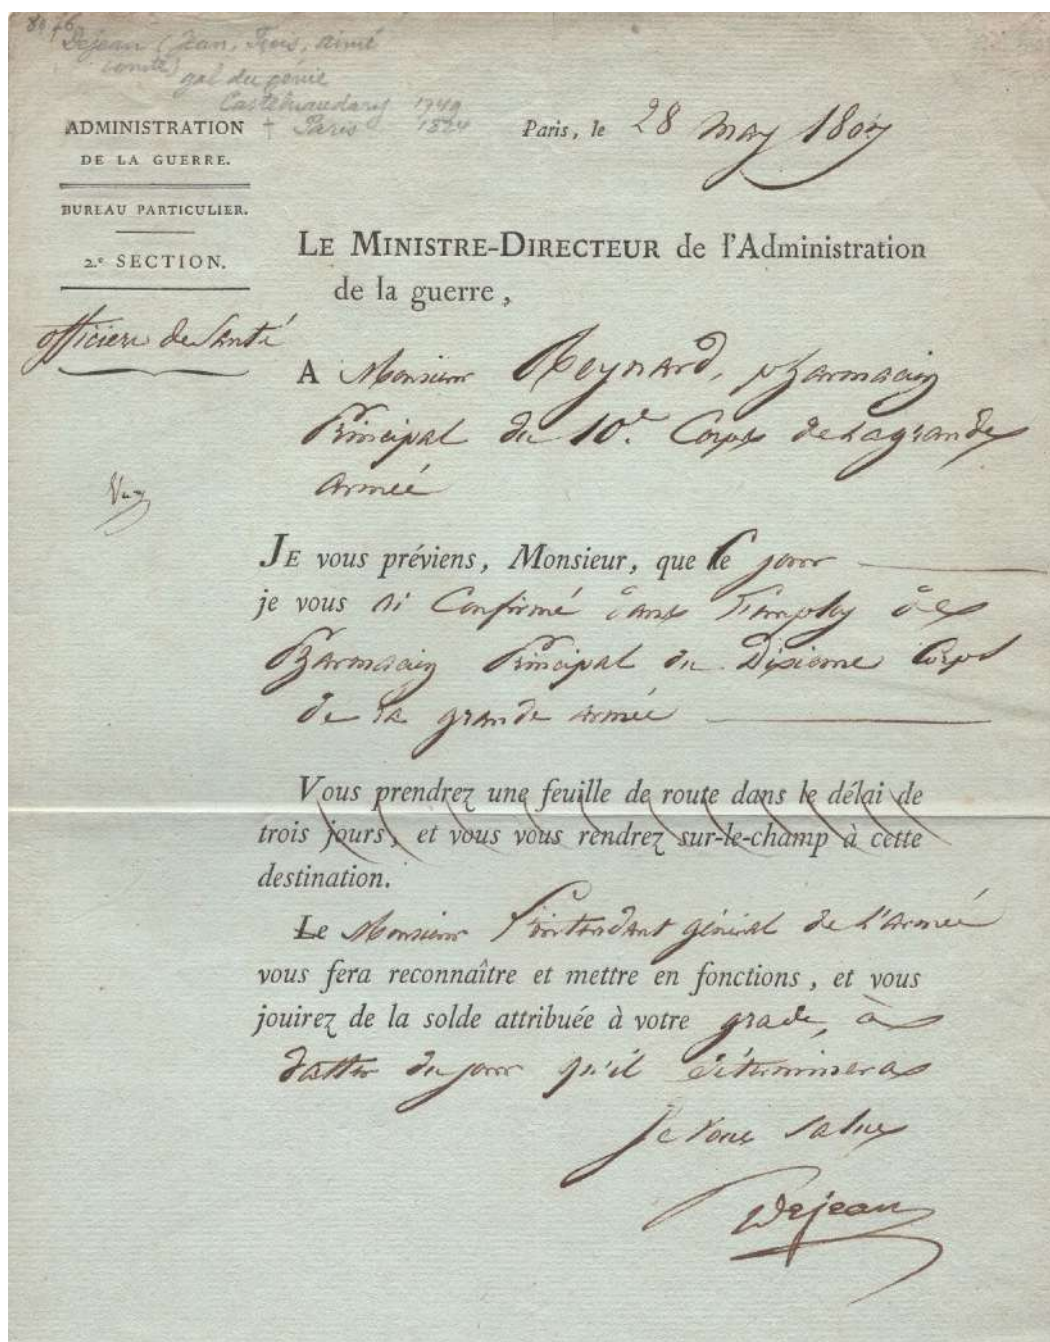 Dejean (Jean, Frois, aimé
comte)
gal du génie
Castelnaudary 1749
+ Paris 1824
ADMINISTRATION
DE LA GUERRE.
BUREAU PARTICULIER.
2.e SECTION.
officiers de Santé
Paris, le 28 May 1807
LE MINISTRE-DIRECTEUR de l'Administration
de la guerre,
A Monsieur Reynard, pharmacien
Principal du 10.e Corps de la grande
armée
JE vous préviens, Monsieur, que ce jour
je vous ai Confirmé dans l'Employ de
Pharmacien Principal du Dixieme Corps
de la grande armée
Vous prendrez une feuille de route dans le délai de
trois jours, et vous vous rendrez sur-le-champ à cette
destination.
Le Monsieur l'intendant général de l'armée
vous fera reconnaître et mettre en fonctions, et vous
jouirez de la solde attribuée à votre grade, à
datter du jour qu'il déterminera
Je vous salue
Dejean